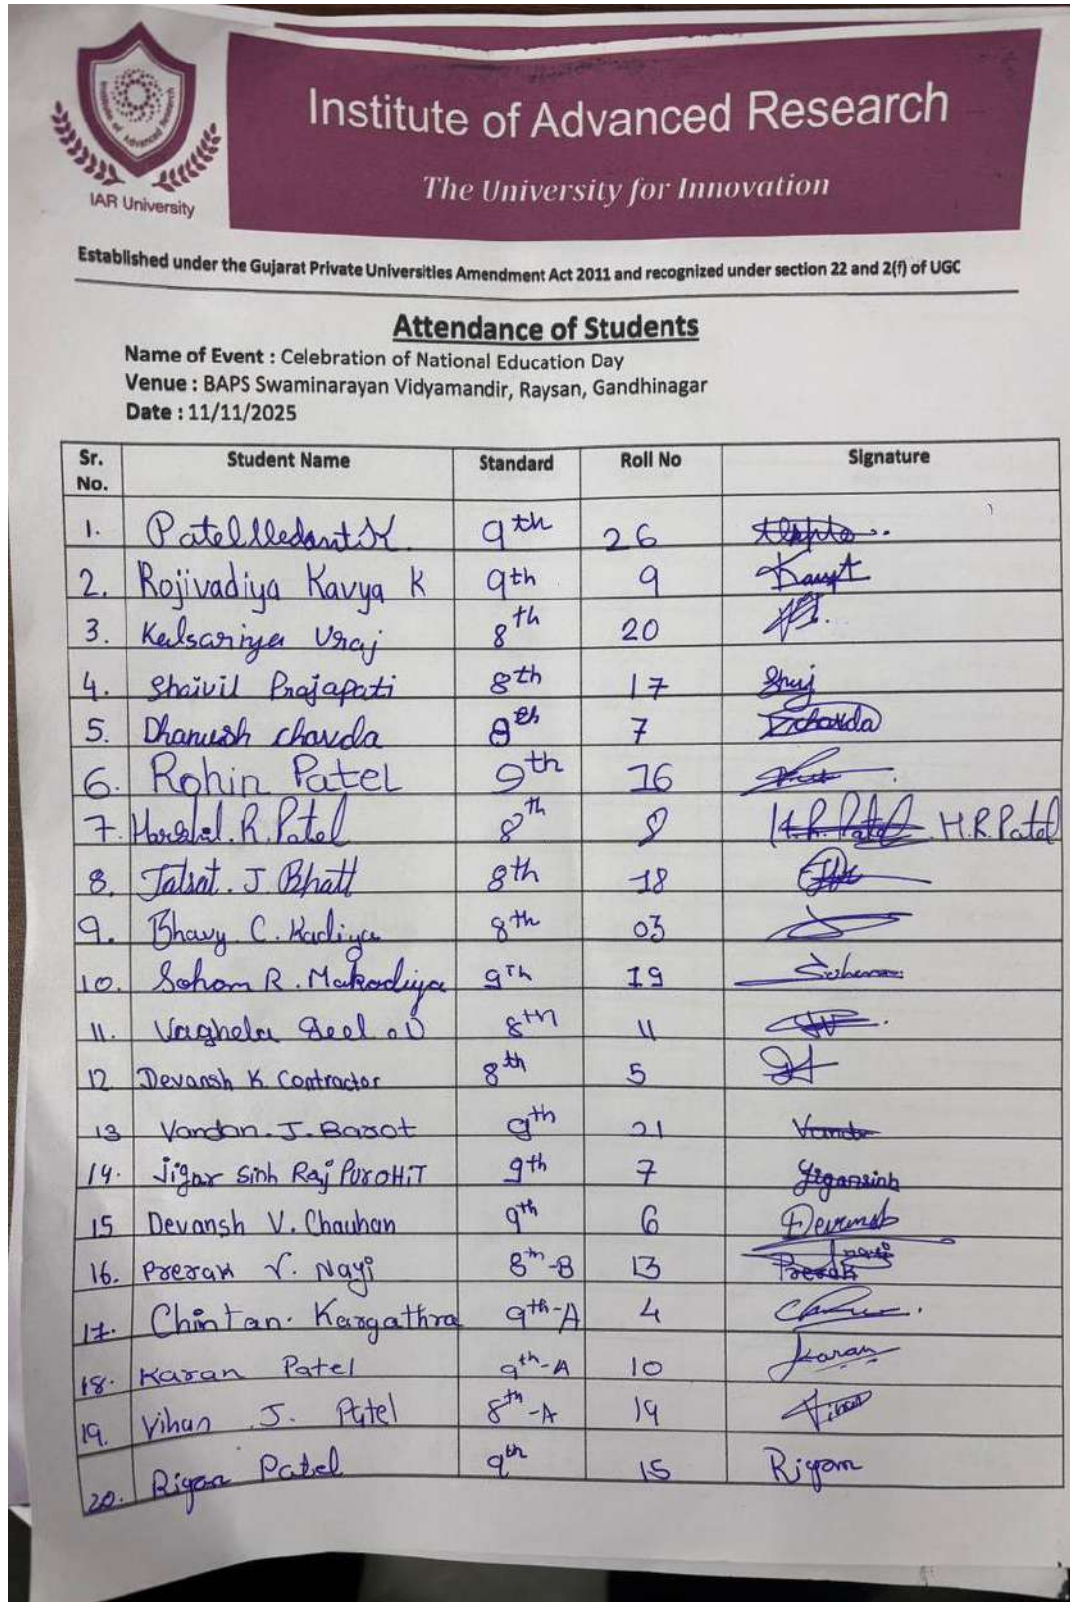 Institute of Advanced Research
The University for Innovation
IAR University
Established under the Gujarat Private Universities Amendment Act 2011 and recognized under section 22 and 2(f) of UGC
Attendance of Students
Name of Event : Celebration of National Education Day
Venue : BAPS Swaminarayan Vidyamandir, Raysan, Gandhinagar
Date : 11/11/2025
Sr. No. Student Name Standard Roll No Signature
1. Patel Vedant K. 9th 26
2. Rojivadiya Kavya K 9th 9
3. Kalsariya Vraj 8th 20
4. Shaivil Prajapati 8th 17
5. Dhanush chavda 8th 7 Dchavda
6. Rohin Patel 9th 16
7. Harshal. R. Patel 8th 8 H.R. Patel H.R. Patel
8. Talsat. J. Bhatt 8th 18
9. Bhavy. C. Kadiya 8th 03
10. Soham R. Makadiya 9Th 19 Soham
11. Vaghela Jeel . D 8th 11
12 Devansh K Contractor 8th 5
13 Vandan. J. Barot 9th 21
14. Jigar Sinh Raj PurOHiT 9th 7 Jigarsinh
15 Devansh V. Chauhan 9th 6 Devansh
16. Prerak V. Nayi 8th-B 13 Prerak Nayi
17. Chintan. Kargathra 9th-A 4
18. Karan Patel 9th-A 10 Karan
19. Vihan J. Patel 8th-A 19 Vihan
20. Riyan Patel 9th 15 Riyan